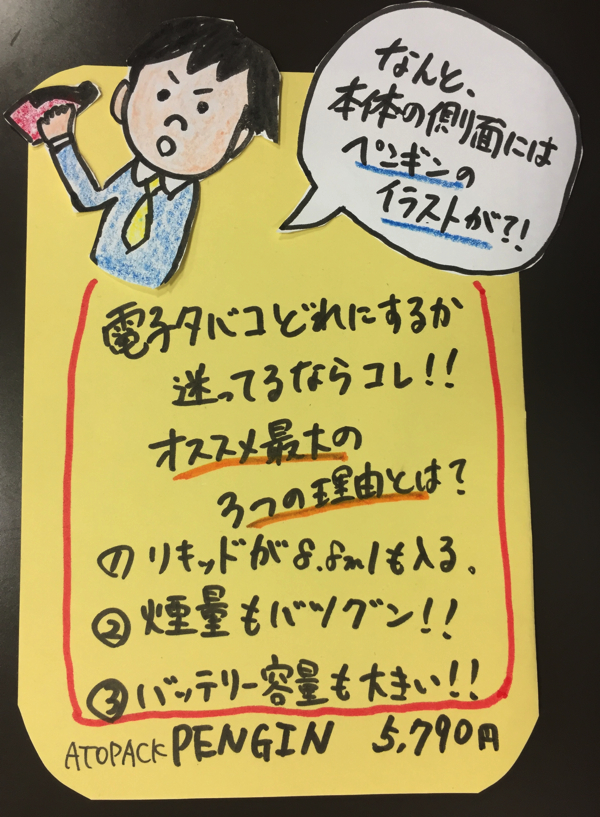 なんと、
本体の側面には
ペンギンの
イラストが?!
電子タバコどれにするか
迷ってるならコレ!!
オススメ最大の
3つの理由とは?
① リキッドが8.8mlも入る。
② 煙量もバツグン!!
③ バッテリー容量も大きい!!
ATOPACK PENGIN 5,790円